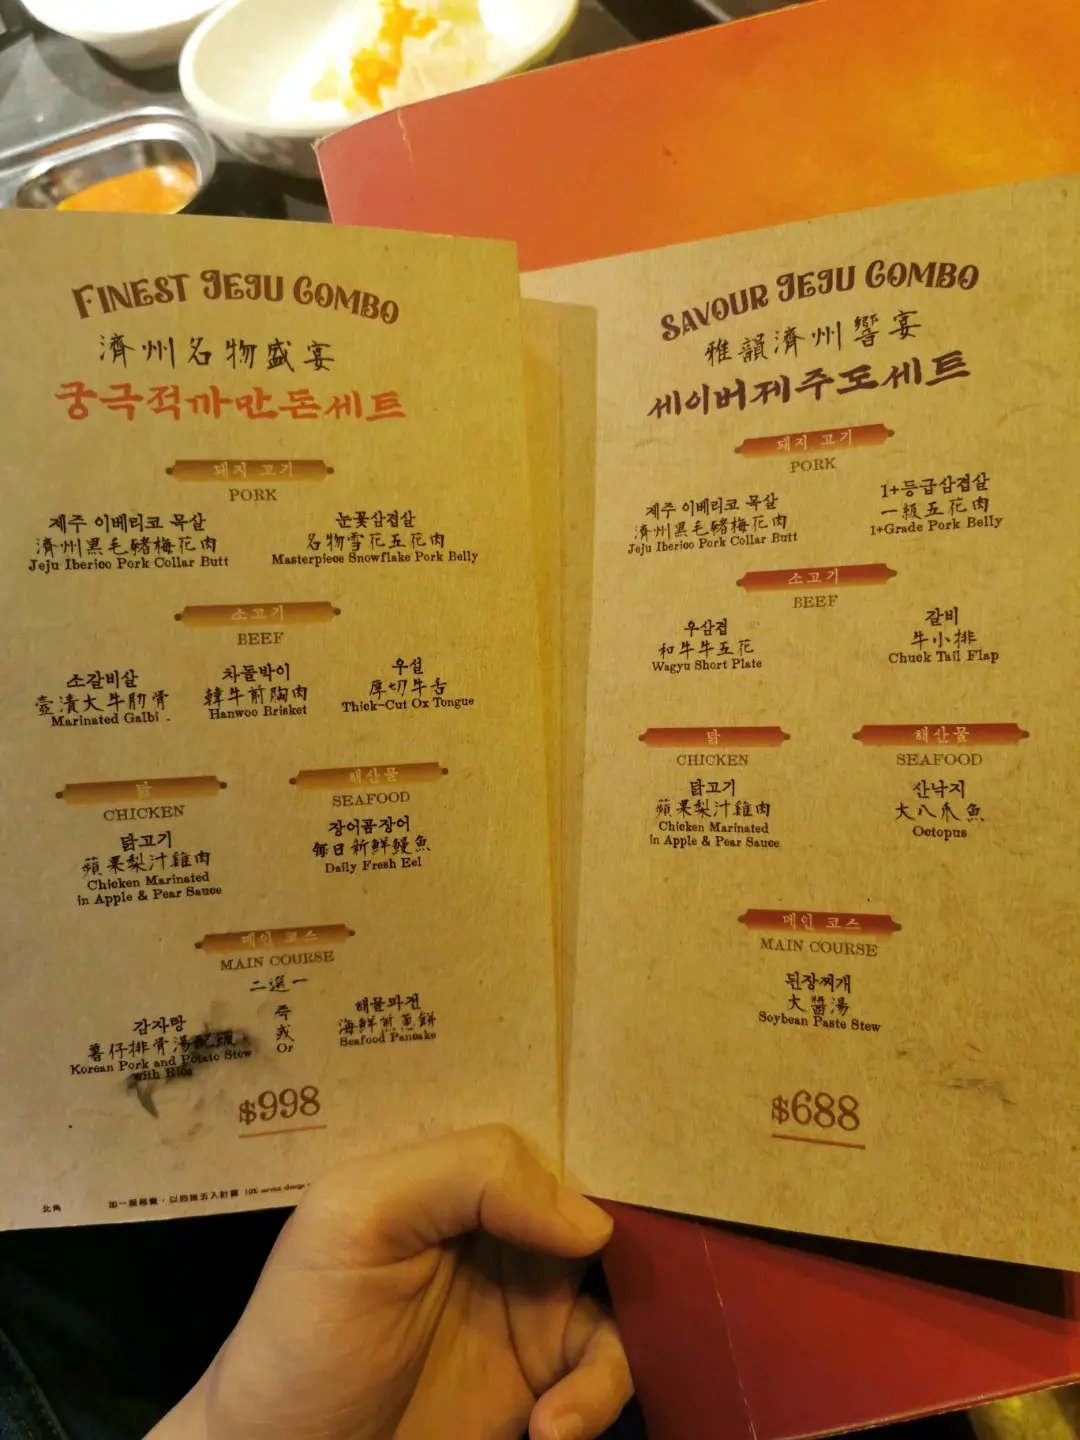 FINEST JEJU COMBO
濟州名物盛宴
궁극적까만돈세트
돼지 고기
PORK
제주 이베리코 목살
濟州黑毛豬梅花肉
Jeju Iberico Pork Collar Butt
눈꽃삼겹살
名物雪花五花肉
Masterpiece Snowflake Pork Belly
소고기
BEEF
소갈비살
壺漬大牛肋骨
Marinated Galbi
차돌박이
韓牛前胸肉
Hanwoo Brisket
우설
厚切牛舌
Thick-Cut Ox Tongue
닭
CHICKEN
닭고기
蘋果梨汁雞肉
Chicken Marinated
in Apple & Pear Sauce
해산물
SEAFOOD
장어곰장어
每日新鮮鰻魚
Daily Fresh Eel
메인 코스
MAIN COURSE
二選一
감자탕
薯仔排骨湯配飯
Korean Pork and Potato Stew
with Rice
즉
或
Or
해물파전
海鮮煎蔥餅
Seafood Pancake
$998
北角
加一服務費，以四捨五入計算 10% service charge
SAVOUR JEJU COMBO
雅韻濟州響宴
세이버제주도세트
돼지 고기
PORK
제주 이베리코 목살
濟州黑毛豬梅花肉
Jeju Iberico Pork Collar Butt
1+등급삼겹살
一級五花肉
1+Grade Pork Belly
소고기
BEEF
우삼겹
和牛牛五花
Wagyu Short Plate
갈비
牛小排
Chuck Tail Flap
닭
CHICKEN
닭고기
蘋果梨汁雞肉
Chicken Marinated
in Apple & Pear Sauce
해산물
SEAFOOD
산낙지
大八爪魚
Octopus
메인 코스
MAIN COURSE
된장찌개
大醬湯
Soybean Paste Stew
$688